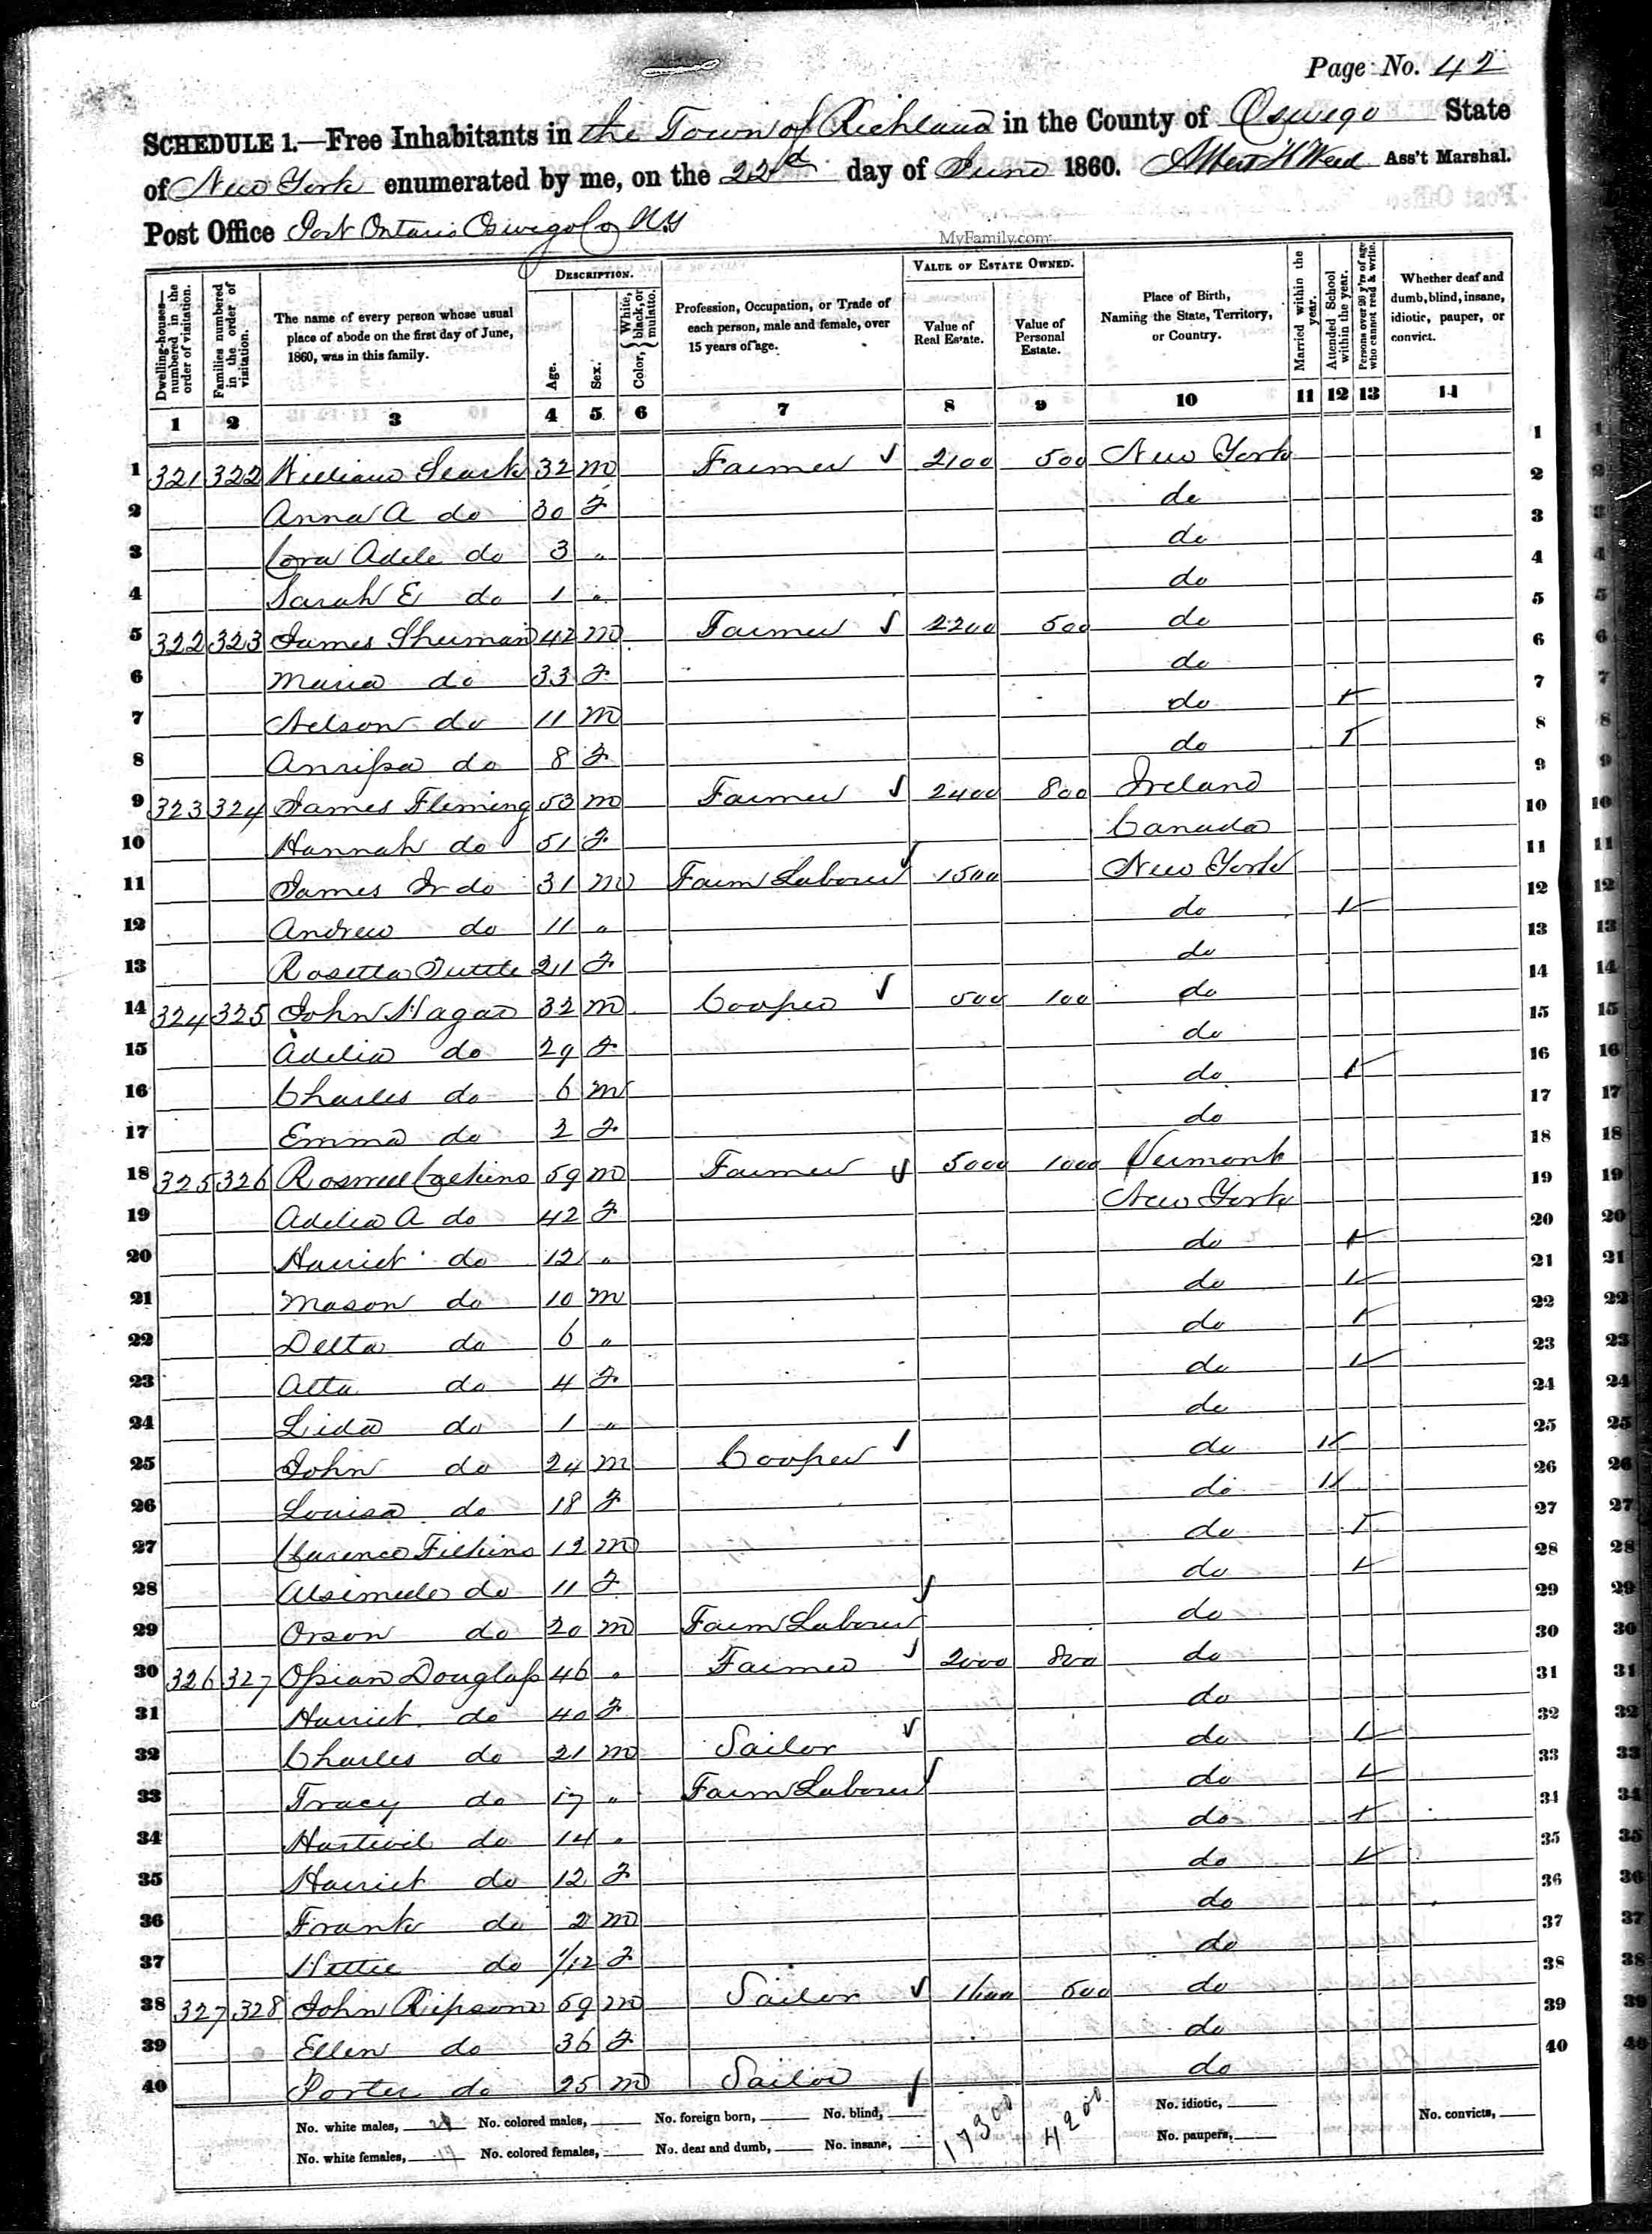 Page No. 42
SCHEDULE 1.—Free Inhabitants in the Town of Richland in the County of Oswego State
of New York enumerated by me, on the 22d day of June 1860. Albert H Weed Ass't Marshal.
Post Office Port Ontario Oswego Co N.Y
MyFamily.com
Dwelling-houses—numbered in the order of visitation. Families numbered in the order of visitation. The name of every person whose usual place of abode on the first day of June, 1860, was in this family. DESCRIPTION. Age. Sex. Color, { White, black, or mulatto. Profession, Occupation, or Trade of each person, male and female, over 15 years of age. VALUE OF ESTATE OWNED. Value of Real Estate. Value of Personal Estate. Place of Birth, Naming the State, Territory, or Country. Married within the year. Attended School within the year. Persons over 20 y'rs of age who cannot read & write. Whether deaf and dumb, blind, insane, idiotic, pauper, or convict.
1 2 3 4 5 6 7 8 9 10 11 12 13 14
1 321 322 William 32 m Farmer 2100 500 New York 1
2 Anna A do 30 F do 2
3 Cora Adele do 3 " do 3
4 Sarah E do 1 " do 4
5 322 323 James Sherman 42 m Farmer 2200 500 do 5
6 Maria do 33 F do 6
7 Nelson do 11 m do 7
8 do 8 F do 8
9 323 324 James Fleming 53 m Farmer 2400 800 Ireland 9
10 Hannah do 51 F Canada 10
11 James Jr do 31 m Farm Laborer 1500 New York 11
12 Andrew do 11 " do 12
13 Rosetta Tuttle 21 F do 13
14 324 325 John Hagar 32 m Cooper 500 100 do 14
15 Adelia do 29 F do 15
16 Charles do 6 m do 16
17 Emma do 2 F do 17
18 325 326 Roswell Calkins 59 m Farmer 5000 1000 Vermont 18
19 Adelia A do 42 F New York 19
20 Harriet do 12 " do 20
21 Mason do 10 m do 21
22 Delta do 6 " do 22
23 Alta do 4 F do 23
24 Lida do 1 " do 24
25 John do 24 m Cooper do 25
26 Louisa do 18 F do 26
27 Clarence Filkins 13 m do 27
28 do 11 F do 28
29 Orson do 20 m Farm Laborer do 29
30 326 327 Ossian Douglass 46 " Farmer 2000 800 do 30
31 Harriet do 40 F do 31
32 Charles do 21 m Sailor do 32
33 Tracy do 17 " Farm Laborer do 33
34 do 14 " do 34
35 Harriet do 12 F do 35
36 Frank do 2 m do 36
37 Hettie do 1/12 F do 37
38 327 328 John Ripson 59 m Sailor 1600 500 do 38
39 Ellen do 36 F do 39
40 Porter do 25 m Sailor do 40
No. white males, No. colored males, No. foreign born, No. blind, 17300 4200 No. idiotic, No. convicts,
No. white females, No. colored females, No. deaf and dumb, No. insane, No. paupers,